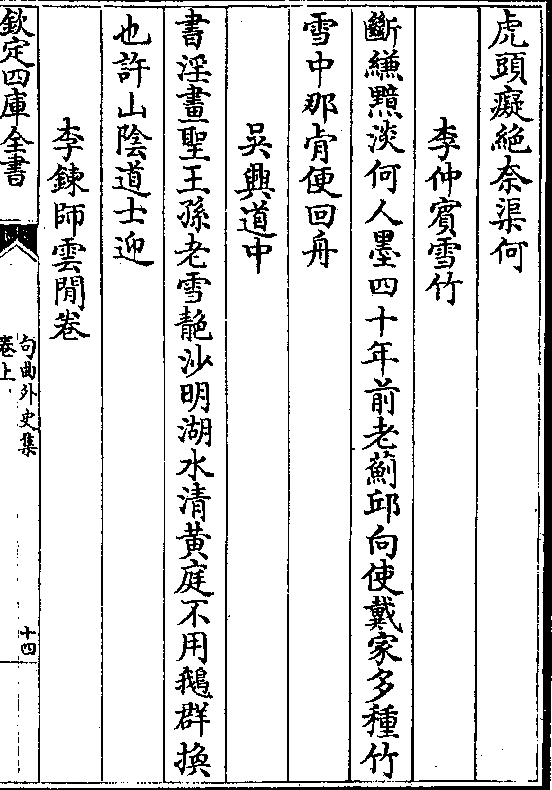 虎頭癡絶奈渠何
李仲賓雪竹
斷縑黯淡何人墨四十年前老薊邱向使戴家多種竹
雪中那肯便回舟
吳興道中
書淫畫聖王孫老雪艶沙明湖水清黃庭不用鵝群換
也許山陰道士迎
李鍊師雲閒卷
欽定四庫全書
句曲外史集
卷上
十四